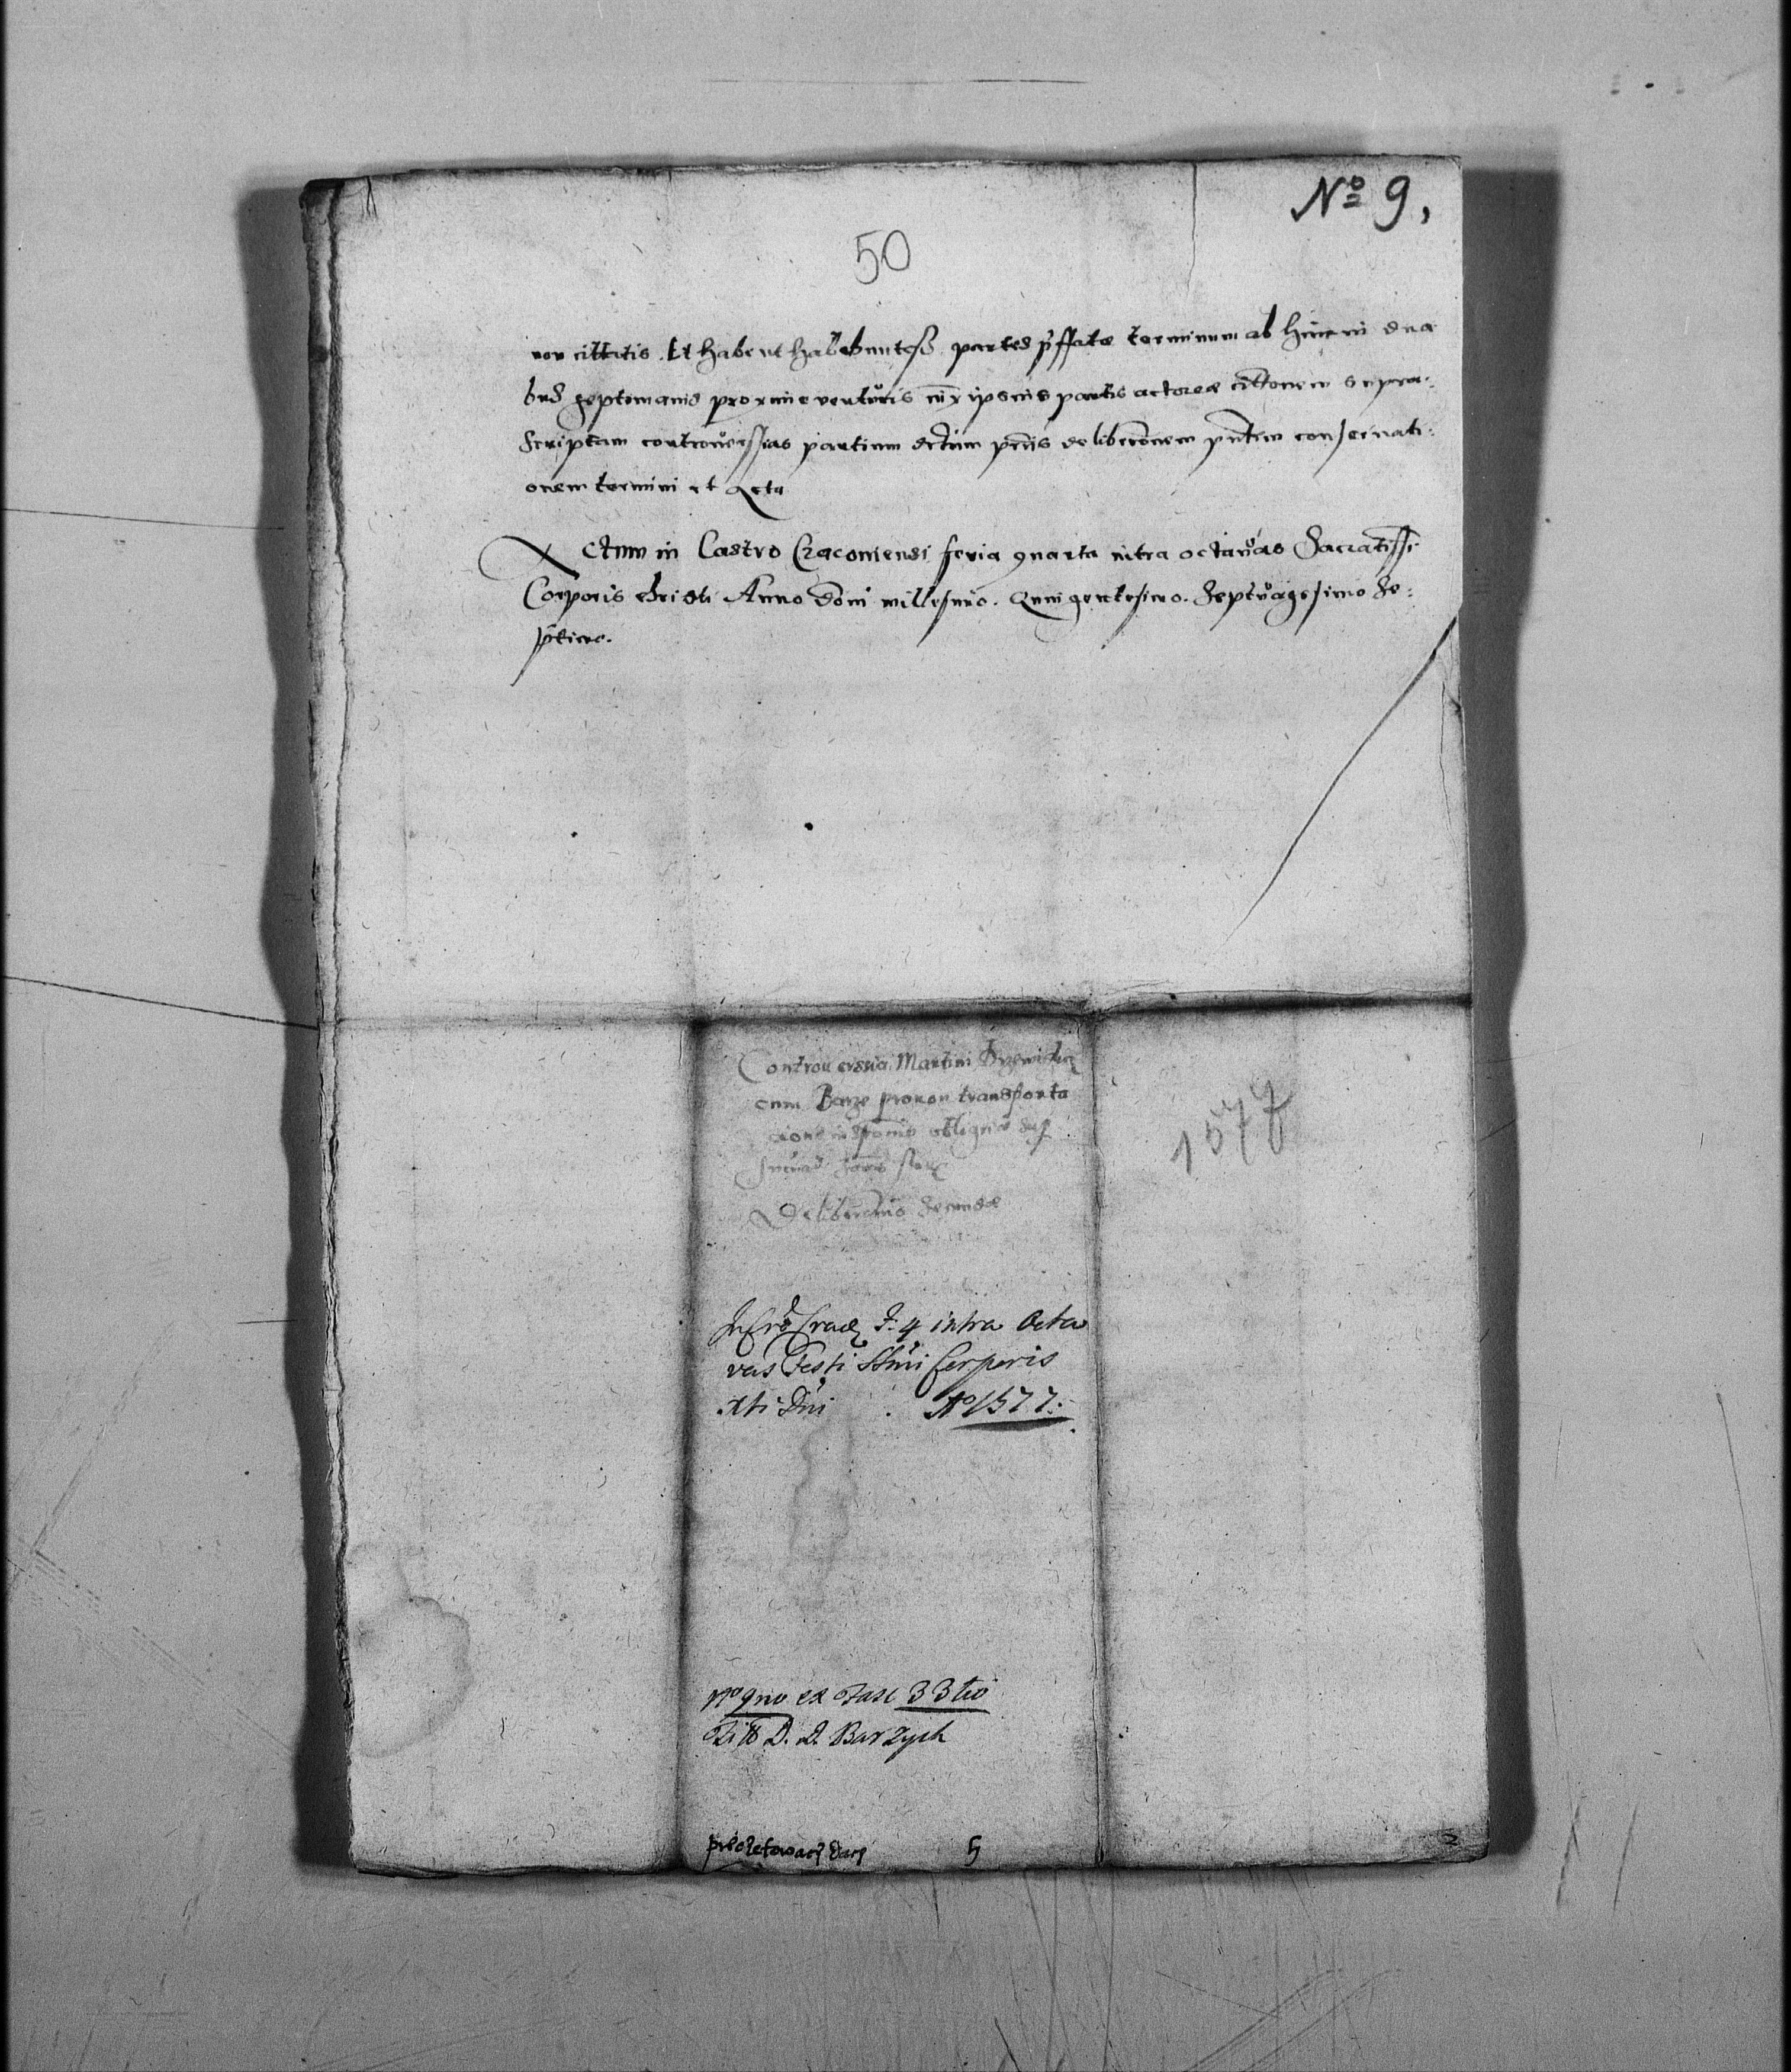 No 9,
50
non cittatis. Et habent habebuntq3 partes pffatae terminum ab hinc in dua
bus septimanis proxime venturis iux ipsius partis actoreae cittonem supra:
scriptam controuersias partium dictum pntis deliberonem pntem conseruati:
onem termini et acta
Actum in Castro Cracouiensi feria quarta intra octauas Sacratissi
Corporis christi Anno Domi millesimo. Quingentesimo. Septuagesimo Se:
ptimo.
Controuersia Martini
cum Barze pro non transporta
cione
Deliberationis secundae
1577
In Cro Crac F. 4 intra Octa
vas Festi Ssmi Corporis
Xti Dni . Ao 1577.
No 9no ex Fasc 33tio
Titt D. D. Barzych
5
2